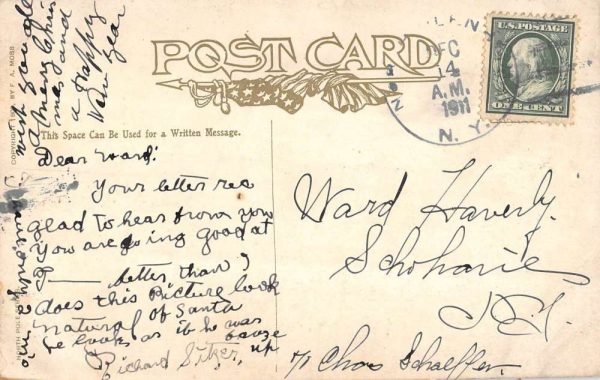 POST CARD
This Space Can Be Used for a Written Message.
U.S. POSTAGE
ONE CENT
DEC
14
A.M.
1911
N.Y.
Dear Ward:
Your letter rec
glad to hear from you
You are doing good at
B—— better than I
does this Picture look
natural of Santa
he looks as if he was
booze
up
Richard
wish you
a Merry Chris
mas and
a Happy
New Year
COPYRIGHT BY F. A. MOSS
NORTH POLE
Ward Haverly.
Schoharie,
N.Y.
c/o Chas Schaeffer.